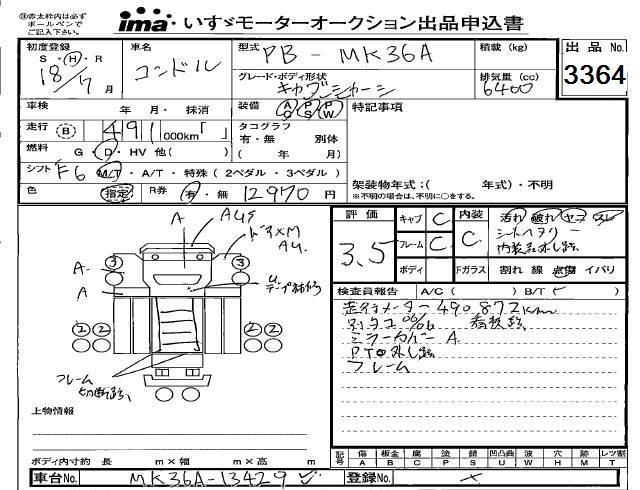 ㊟赤太枠内は必ず
ボールペンで
ご記入下さい。
ima いすゞモーターオークション出品申込書
初度登録 車名 型式 PB-MK36A 積載(kg) 出品No.
S・H・R 18/7月 コンドル グレード・ボディ形状 キャブシャーシ 排気量(cc) 6400 3364
車検 年 月・ 抹消 装備 AC PS PW 特記事項
走行 B 491,000km「 」 タコグラフ
有・無 別体
燃料 G・D・HV 他( ) ( 年 月)
シフト F6 M/T・A/T・特殊(2ペダル・3ペダル) 架装物年式:( 年式)・不明
色 指定 R券 有・無 12970円 ※不明の場合は、不明に○をする。
評価 3.5 キャブ C 内装 C 汚れ 破れ
フレーム C シートヘタリ
ボディ Fガラス 割れ 線 点傷 イバリ
A A
ドア×M
AU.
3 3
A.
A
U
2 2 2 2
フレーム
切断跡
検査員報告 A/C( ) B/T( )
走行メーター490872km
06/06 看板跡
ミラーカバー A
PTO外し跡
フレーム
上物情報
ボディ内寸約 長 m×幅 m×高 m
記号 傷 板金 腐 塗 錆 凹凸曲 波 穴 跡 レツ割
A B C P S U W H M T
車台No. MK36A-13429 登録No.